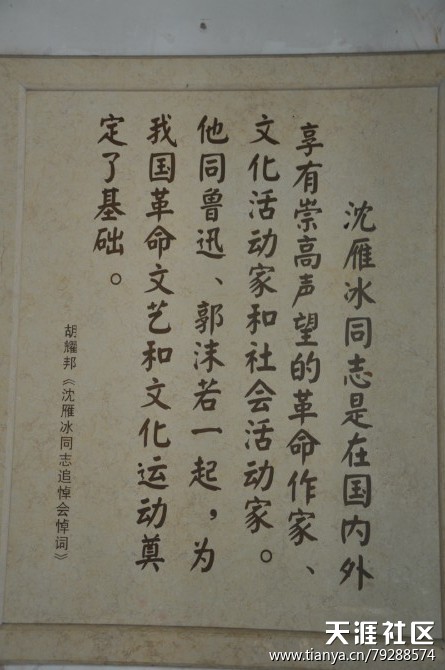 沈雁冰同志是在国内外
享有崇高声望的革命作家、
文化活动家和社会活动家。
他同鲁迅、郭沫若一起，为
我国革命文艺和文化运动奠
定了基础。
胡耀邦《沈雁冰同志追悼会悼词》
天涯社区
www.tianya.cn/79288574